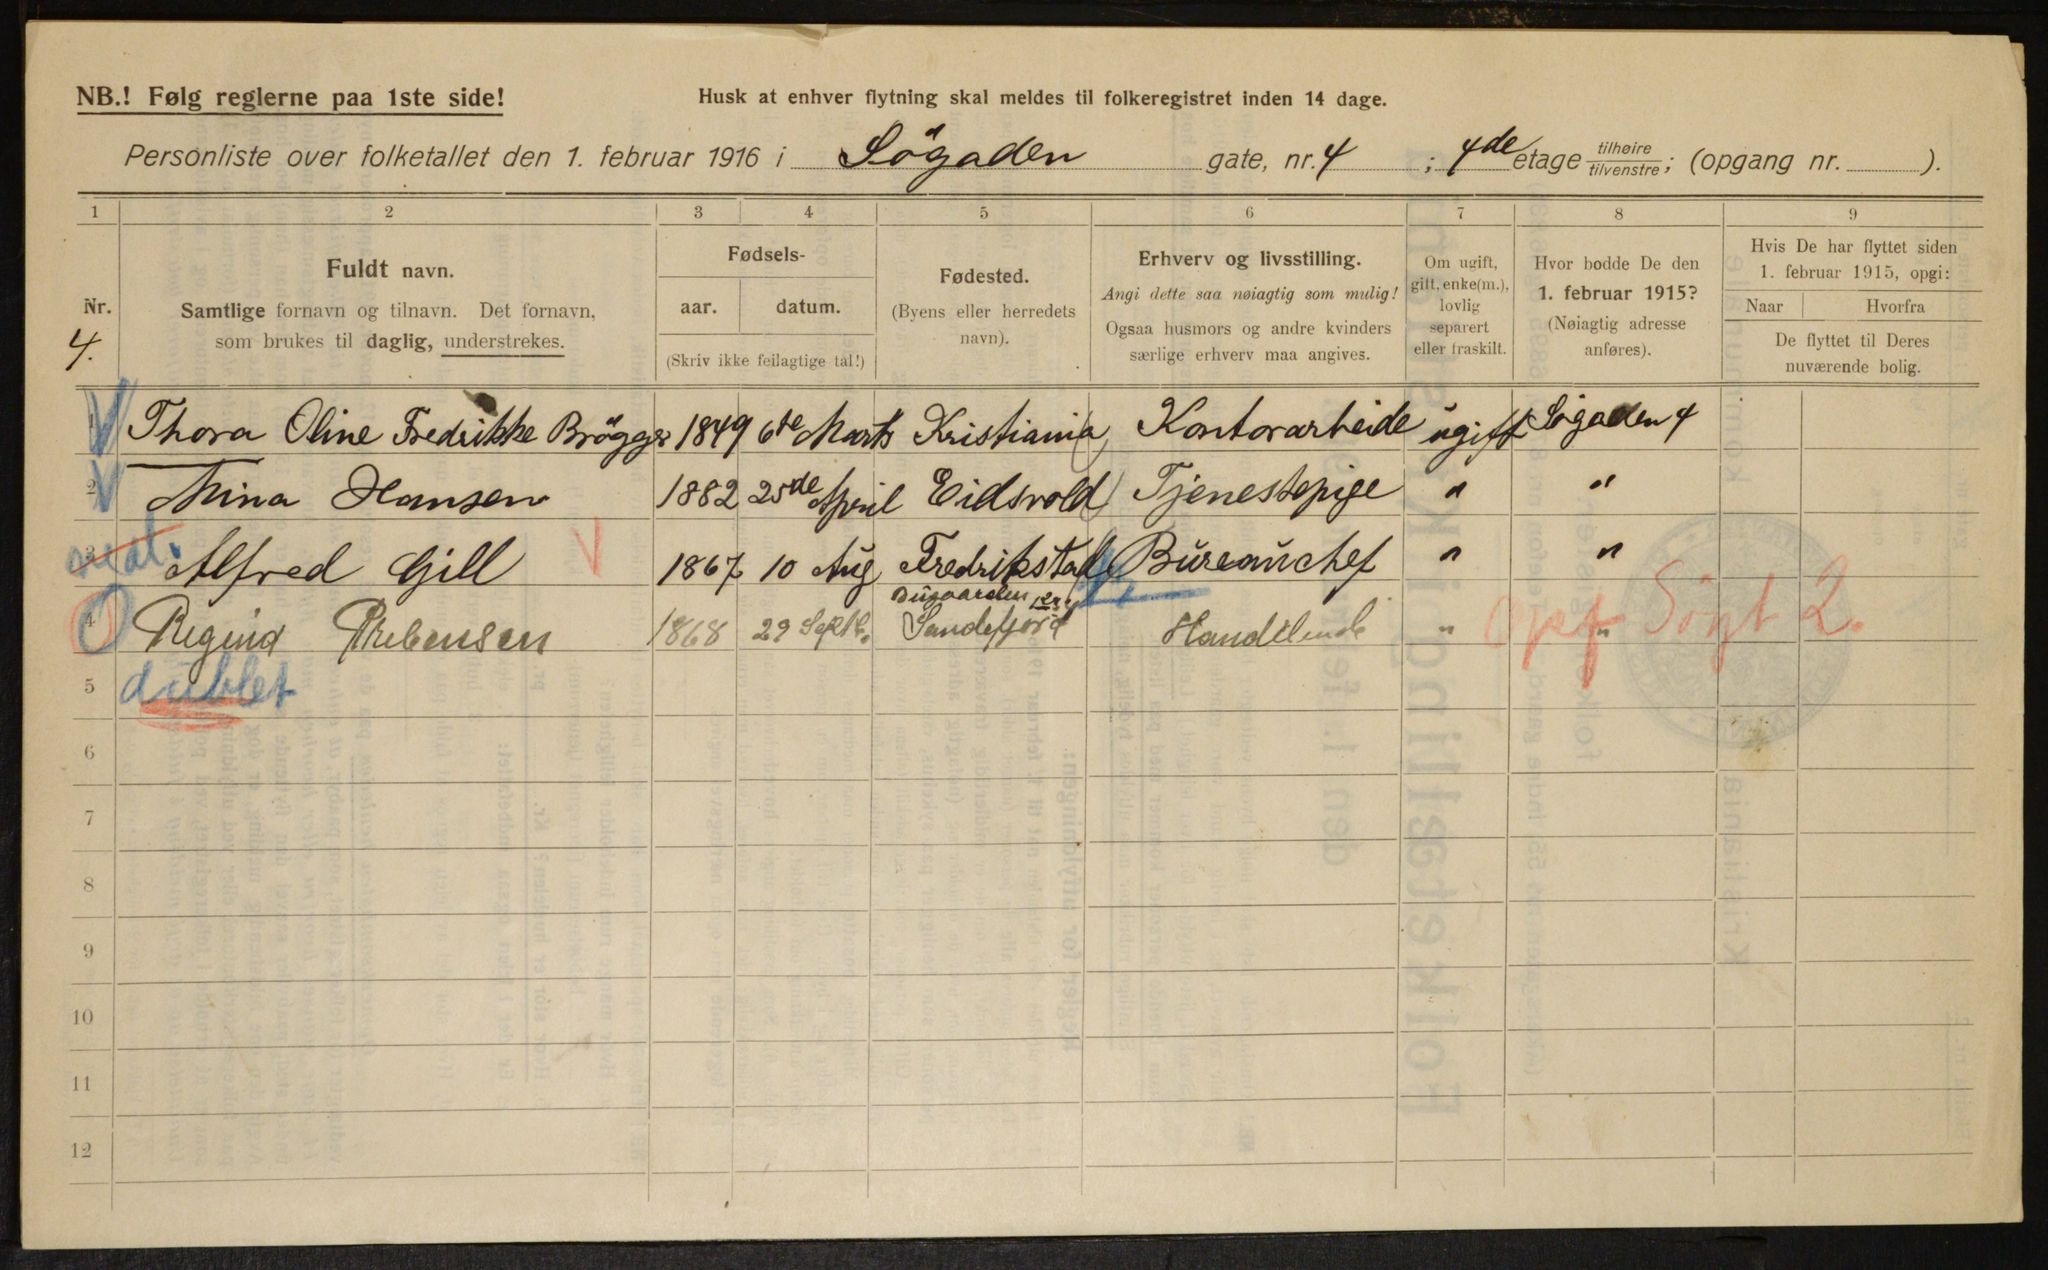 NB.! Følg reglerne paa 1ste side!
Husk at enhver flytning skal meldes til folkeregistret inden 14 dage.
Personliste over folketallet den 1. februar 1916 i Søgaden gate, nr. 4 ; 4de etage tilhøire/tilvenstre; (opgang nr. ).
1 2 3 4 5 6 7 8 9
Nr. 4.
Fuldt navn.
Samtlige fornavn og tilnavn. Det fornavn,
som brukes til daglig, understrekes.
Fødsels-
aar. datum.
(Skriv ikke feilagtige tal!)
Fødested.
(Byens eller herredets
navn).
Erhverv og livsstilling.
Angi dette saa nøiagtig som mulig!
Ogsaa husmors og andre kvinders
særlige erhverv maa angives.
Om ugift,
gift, enke(m.),
lovlig
separert
eller fraskilt.
Hvor bodde De den
1. februar 1915?
(Nøiagtig adresse
anføres).
Hvis De har flyttet siden
1. februar 1915, opgi:
Naar Hvorfra
De flyttet til Deres
nuværende bolig.
1 Thora Oline Fredrikke Brøgger 1849 6te Marts Kristiania Kontorarbeide ugift Søgaden 4
2 Mina Hansen 1882 25de April Eidsvold Tjenestepige " "
3 Alfred Gill 1867 10 Aug Fredrikstad Bureauchef " "
4 Regina Prebensen 1868 29 Septb. Sandefjord Handlende " " Opf Søgt 2.
5 dublet
6
7
8
9
10
11
12